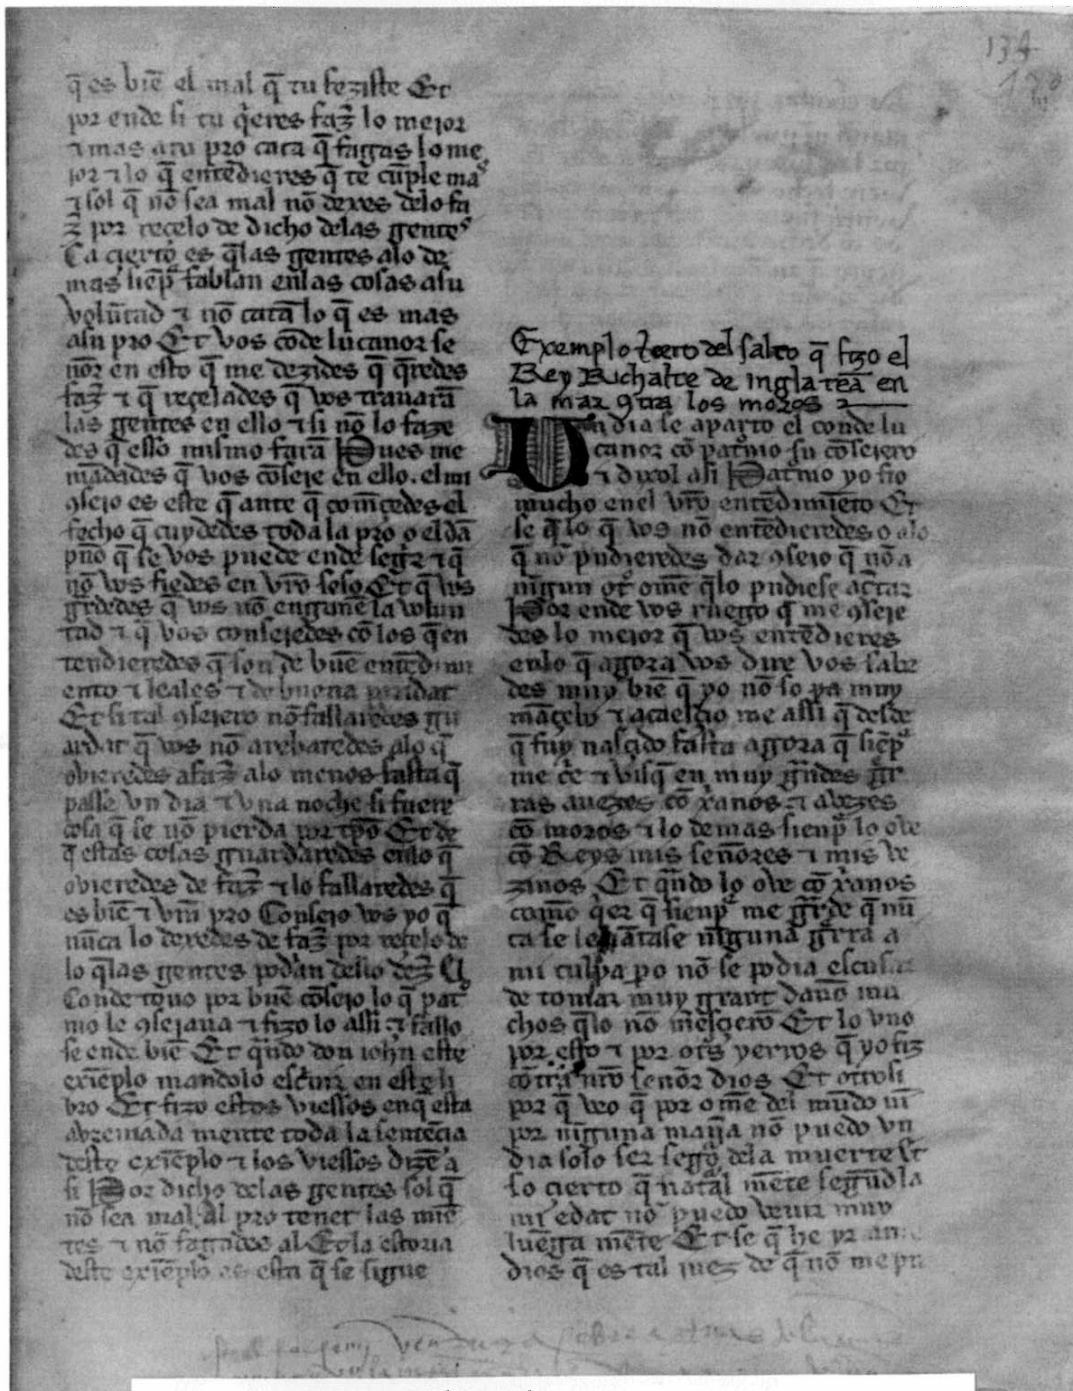 q̄ es biē el mal q̄ tu feziste Et
por ende si tu q̾eres faz̄ lo mejor
⁊ mas atu pro cata q̄ fagas lo me
jor ⁊ lo q̄ entēdieres q̄ te cūple ma
⁊ sol q̄ nō sea mal nō dexes delo fa
z̄ por reçelo de dicho delas gentes
Ca çierto es q̄las gentes alo de
mas sienp̄ fablan enlas cosas asu
volūtad ⁊ nō catā lo q̄ es mas
asu pro Et vos cōde lucanor se
nōr en esto q̄ me dezides q̄ q̄redes
faz̄ ⁊ q̄ reçelades q̄ vos trauarā
las gentes en ello ⁊ si nō lo faze
des q̄ esso mismo farā Pues me
mādades q̄ vos cōseje en ello . el mi
ꝯsejo es este q̄ ante q̄ comēçedes el
fecho q̄ cuydedes toda la pro o el dā
pño q̄ se vos puede ende segr̄ ⁊ q̄
nō vos fiedes en vr̄o seso Et q̄ vos
gr̄dedes q̄ vos nō engañe la volun
tad ⁊ q̄ vos consejedes cō los q̄ en
tendieredes q̄ son de buē entēdimi
ento ⁊ leales ⁊ de buena poridat
Et si tal ꝯsejero nō fallaredes gu
ardat q̄ vos nō arebatedes alo q̄
obieredes afaz̄ alo menos fasta q̄
passe vn dia ⁊ vna noche si fuere
cosa q̄ se nō pierda por tp̄o Et de
q̄ estas cosas guardaredes enlo q̄
obieredes de faz̄ ⁊ lo fallaredes q̄
es biē ⁊ vr̄o pro Consejo vos yo q̄
nūca lo dexedes de faz̄ por reçelo de
lo q̄las gentes podrān dello dez̄ El
Conde touo por buē cōsejo lo q̄ pat̾
nio le ꝯsejaua ⁊ fizo lo assi ⁊ fallo
se ende biē Et q̄ndo don iohn̄ este
exiēplo mandolo esc̾uir en este li
bro Et fizo estos viessos enq̄ esta
abreuiada mente toda la sentēcia
deste exiēplo ⁊ los viessos dizē a
si Por dicho delas gentes sol q̄
nō sea mal al pro tenet las miē
tes ⁊ nō fagades al Et la estoria
deste exiēplo es esta q̄ se sigue
Exemplo t̾cero del salto q̄ fizo el
Rey Richalte de inglater̄a en
la mar ꝯtra los moros
Un dia se aparto el conde lu
canor cō pat̾nio su cōsejero
⁊ dixol asi Pat̾nio yo fio
mucho enel vr̄o entēdimiēto Et
se q̄ lo q̄ vos nō entēdieredes o alo
q̄ nō pudieredes dar ꝯsejo q̄ nō a
nīgun ot̾ omē q̄lo pudiese açtar
Por ende vos ruego q̄ me ꝯseje
des lo mejor q̄ vos entēdieres
enlo q̄ agora vos dire vos sabe
des muy biē q̄ yo nō so ya muy
māçebo ⁊ acaesçio me assi q̄ desde
q̄ fuy nasçido fasta agora q̄ sienp̄
me c̾e ⁊ visq̄ en muy gr̄ndes g̾r
ras auezes cō xānos ⁊ abezes
cō moros ⁊ lo demas sienp̄ lo oue
cō Reys mis señores ⁊ mis ve
zinos Et q̄ndo lo oue cō xānos
como q̾er q̄ sienp̄ me gr̄de q̄ nū
ca se leuātase nīguna g̾rra a
mi culpa po nō se podia escusar
de tomar muy grant daño mu
chos q̄lo nō m̄esçierō Et lo vno
por esto ⁊ por otr̄s yerros q̄ yo fiz
cōtra nr̄o señor dios Et otrosi
por q̄ veo q̄ por omē del mūdo ni
por nīguna man̄a nō puedo vn
dia solo ser segr̄o dela muerte Et
so cierto q̄ natal mēte segūd la
mi edat nō puedo veuir muy
luēga mēte Et se q̄ he yr ante
dios q̄ es tal juez de q̄ nō me pu